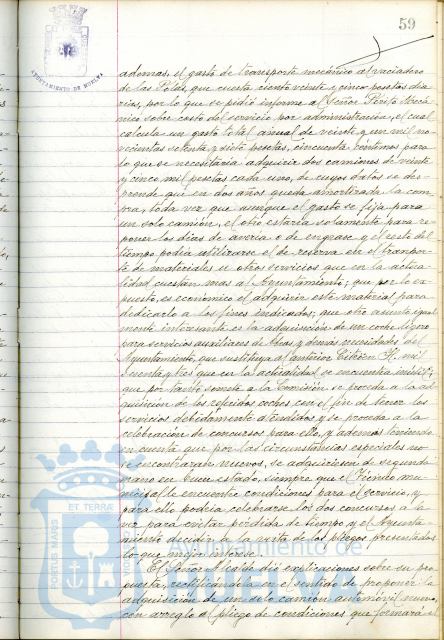 59
AYUNTAMIENTO DE HUELVA
además, el gasto de transporte mecánico al vaciadero
de las Pólas, que cuesta ciento veinte y cinco pesetas dia-
rias, por lo que se pidió informe al Señor Perito Mecá-
nico sobre costo del servicio por administración, el cual
calcula un gasto total anual de veinte y un mil no-
vecientas setenta y siete pesetas, cincuenta céntimos para
lo que se necesitaria adquirir dos camiones de veinte
y cinco mil pesetas cada uno, de cuyos datos se des-
prende que en dos años queda amortizada la com-
pra, toda vez que aunque el gasto se fija para
un solo camión, el otro estaria solamente para re-
poner los dias de averia o de engrase y el resto del
tiempo podia utilizarse el de reserva en el transpor-
te de materiales u otros servicios que en la actua-
lidad cuestan mas al Ayuntamiento; que por lo ex-
puesto, es económico el adquirir este material para
dedicarlo a los fines indicados; que otro asunto igual-
mente interesante es la adquisición de un coche ligero
para servicios auxiliares de Obras y demás necesidades del
Ayuntamiento, que sustituya al anterior Citröen H. mil
y tres que en la actualidad se encuentra inútil;
que por tanto somete a la Comisión se proceda a la ad-
quisición de los referidos coches con el fin de tener los
servicios debidamente atendidos y se proceda a la
celebración de concursos para ello, y además teniendo
en cuenta que por las circunstancias especiales no
se encontraran nuevos, se adquiriesen de segunda
mano en buen estado, siempre que el Técnico mu-
nicipal le encuentre condiciones para el servicio, y
para ello podria celebrarse los dos concursos a la
vez para evitar perdida de tiempo y el Ayunta-
miento decidir a la vista de los pliegos presentados
lo que mejor interese.
El Señor Alcalde dió explicaciones sobre su pro-
puesta, rectificándola en el sentido de proponer la
adquisición de un solo camión automóvil nuevo,
con arreglo al pliego de condiciones que formará el
PORTUS MARIS
ET TERRÆ
Ayuntamiento de